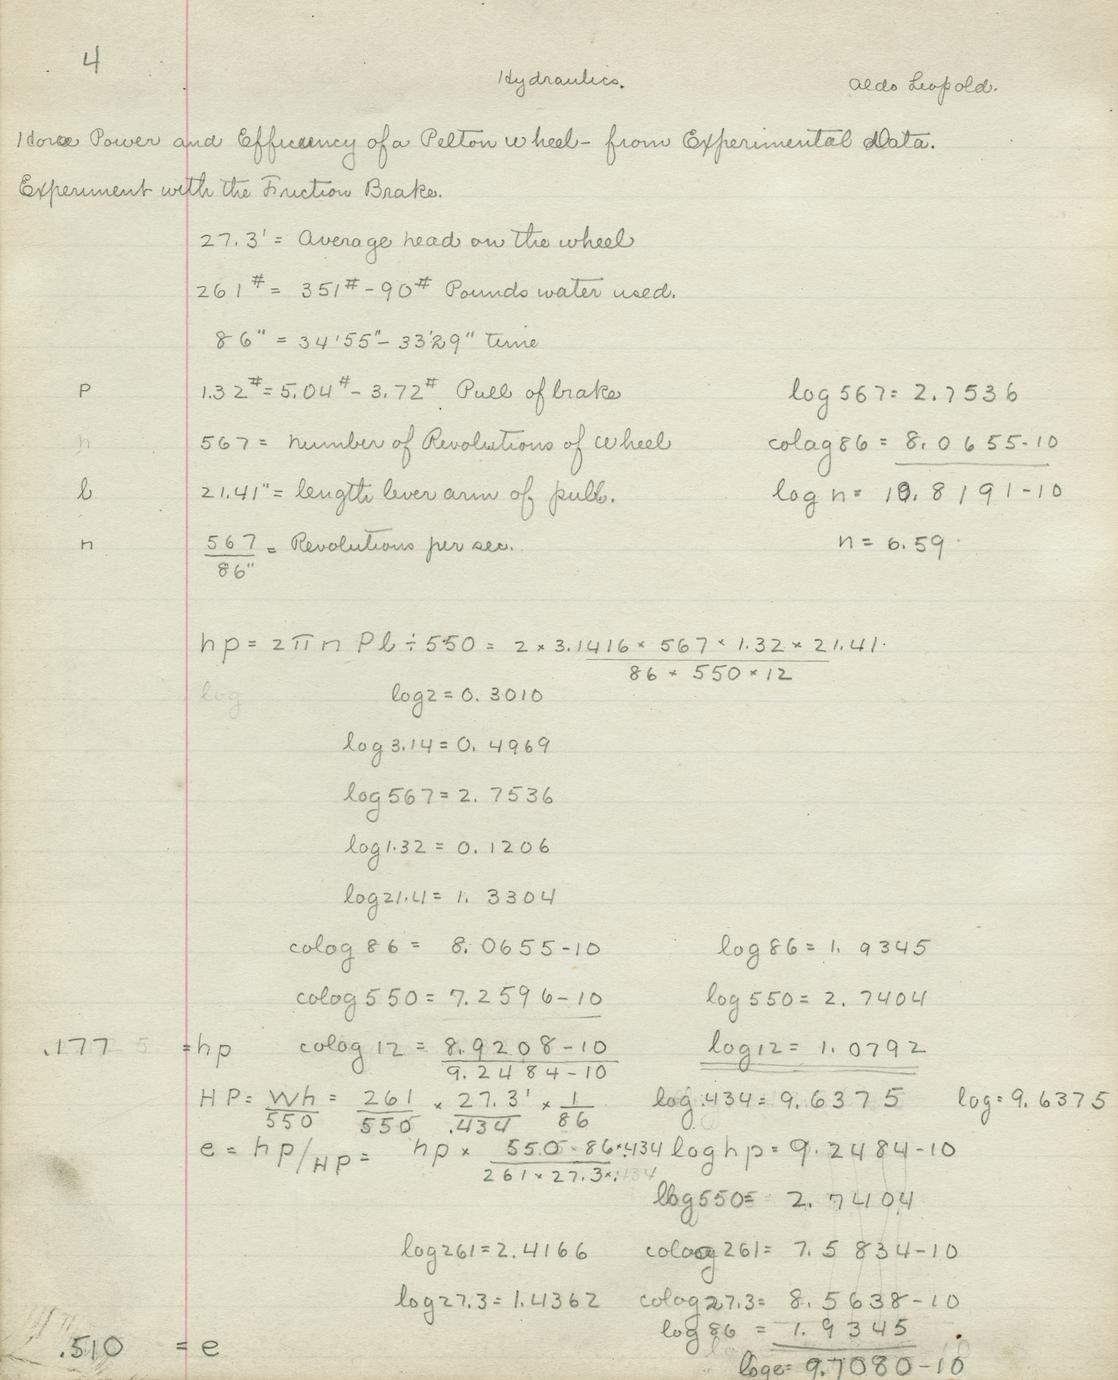 4
Hydraulics.
Aldo Leopold.
Horse Power and Efficiency of a Pelton wheel - from Experimental Data.
Experiment with the Friction Brake.
27.3' = Average head on the wheel
261# = 351# - 90# Pounds water used.
86" = 34'55" - 33'29" time
P 1.32# = 5.04# - 3.72# Pull of brake log 567 = 2.7536
n 567 = number of Revolutions of wheel colog 86 = 8.0655-10
l 21.41" = length lever arm of pull. log n = 10.8191-10
n 567/86" = Revolutions per sec. n = 6.59
hp = 2πn Pl ÷ 550 = 2 × 3.1416 × 567 × 1.32 × 21.41
86 × 550 × 12
log log 2 = 0.3010
log 3.14 = 0.4969
log 567 = 2.7536
log 1.32 = 0.1206
log 21.41 = 1.3304
colog 86 = 8.0655-10 log 86 = 1.9345
colog 550 = 7.2596-10 log 550 = 2.7404
.177 = hp colog 12 = 8.9208-10 log 12 = 1.0792
9.2484-10
HP = Wh/550 = 261/550 × 27.3'/.434 × 1/86 log .434 = 9.6375 log = 9.6375
e = hp/HP = hp × 550 · 86 × .434 log hp = 9.2484-10
261 × 27.3 × .434
log 550 = 2.7404
log 261 = 2.4166 colog 261 = 7.5834-10
log 27.3 = 1.4362 colog 27.3 = 8.5638-10
log 86 = 1.9345
.510 = e
log e = 9.7080-10